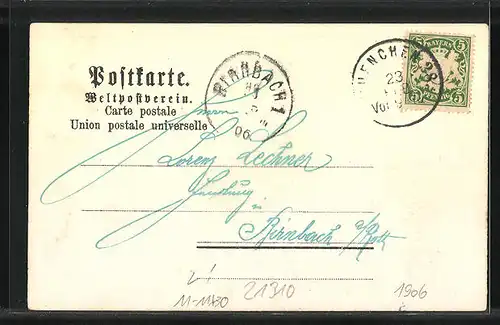 Postkarte.
Weltpostverein.
Carte postale
Union postale universelle
BIRNBACH 1
06
MUENCHEN 23
Vor 9
BAYERN
5 5
Herrn
Lorenz Lechner
Handlung
in
Birnbach a/Rott
11-1180
21310
1906